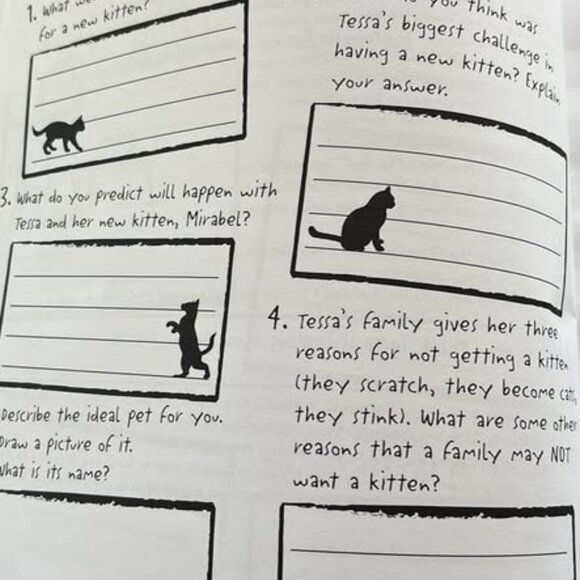 1. What
for a new kitten?
you think was
Tessa's biggest challenge in
having a new kitten? Explain
your answer.
3. What do you predict will happen with
Tessa and her new kitten, Mirabel?
4. Tessa's family gives her three
reasons for not getting a kitten
(they scratch, they become cats,
they stink). What are some other
reasons that a family may NOT
want a kitten?
Describe the ideal pet for you.
Draw a picture of it.
What is its name?